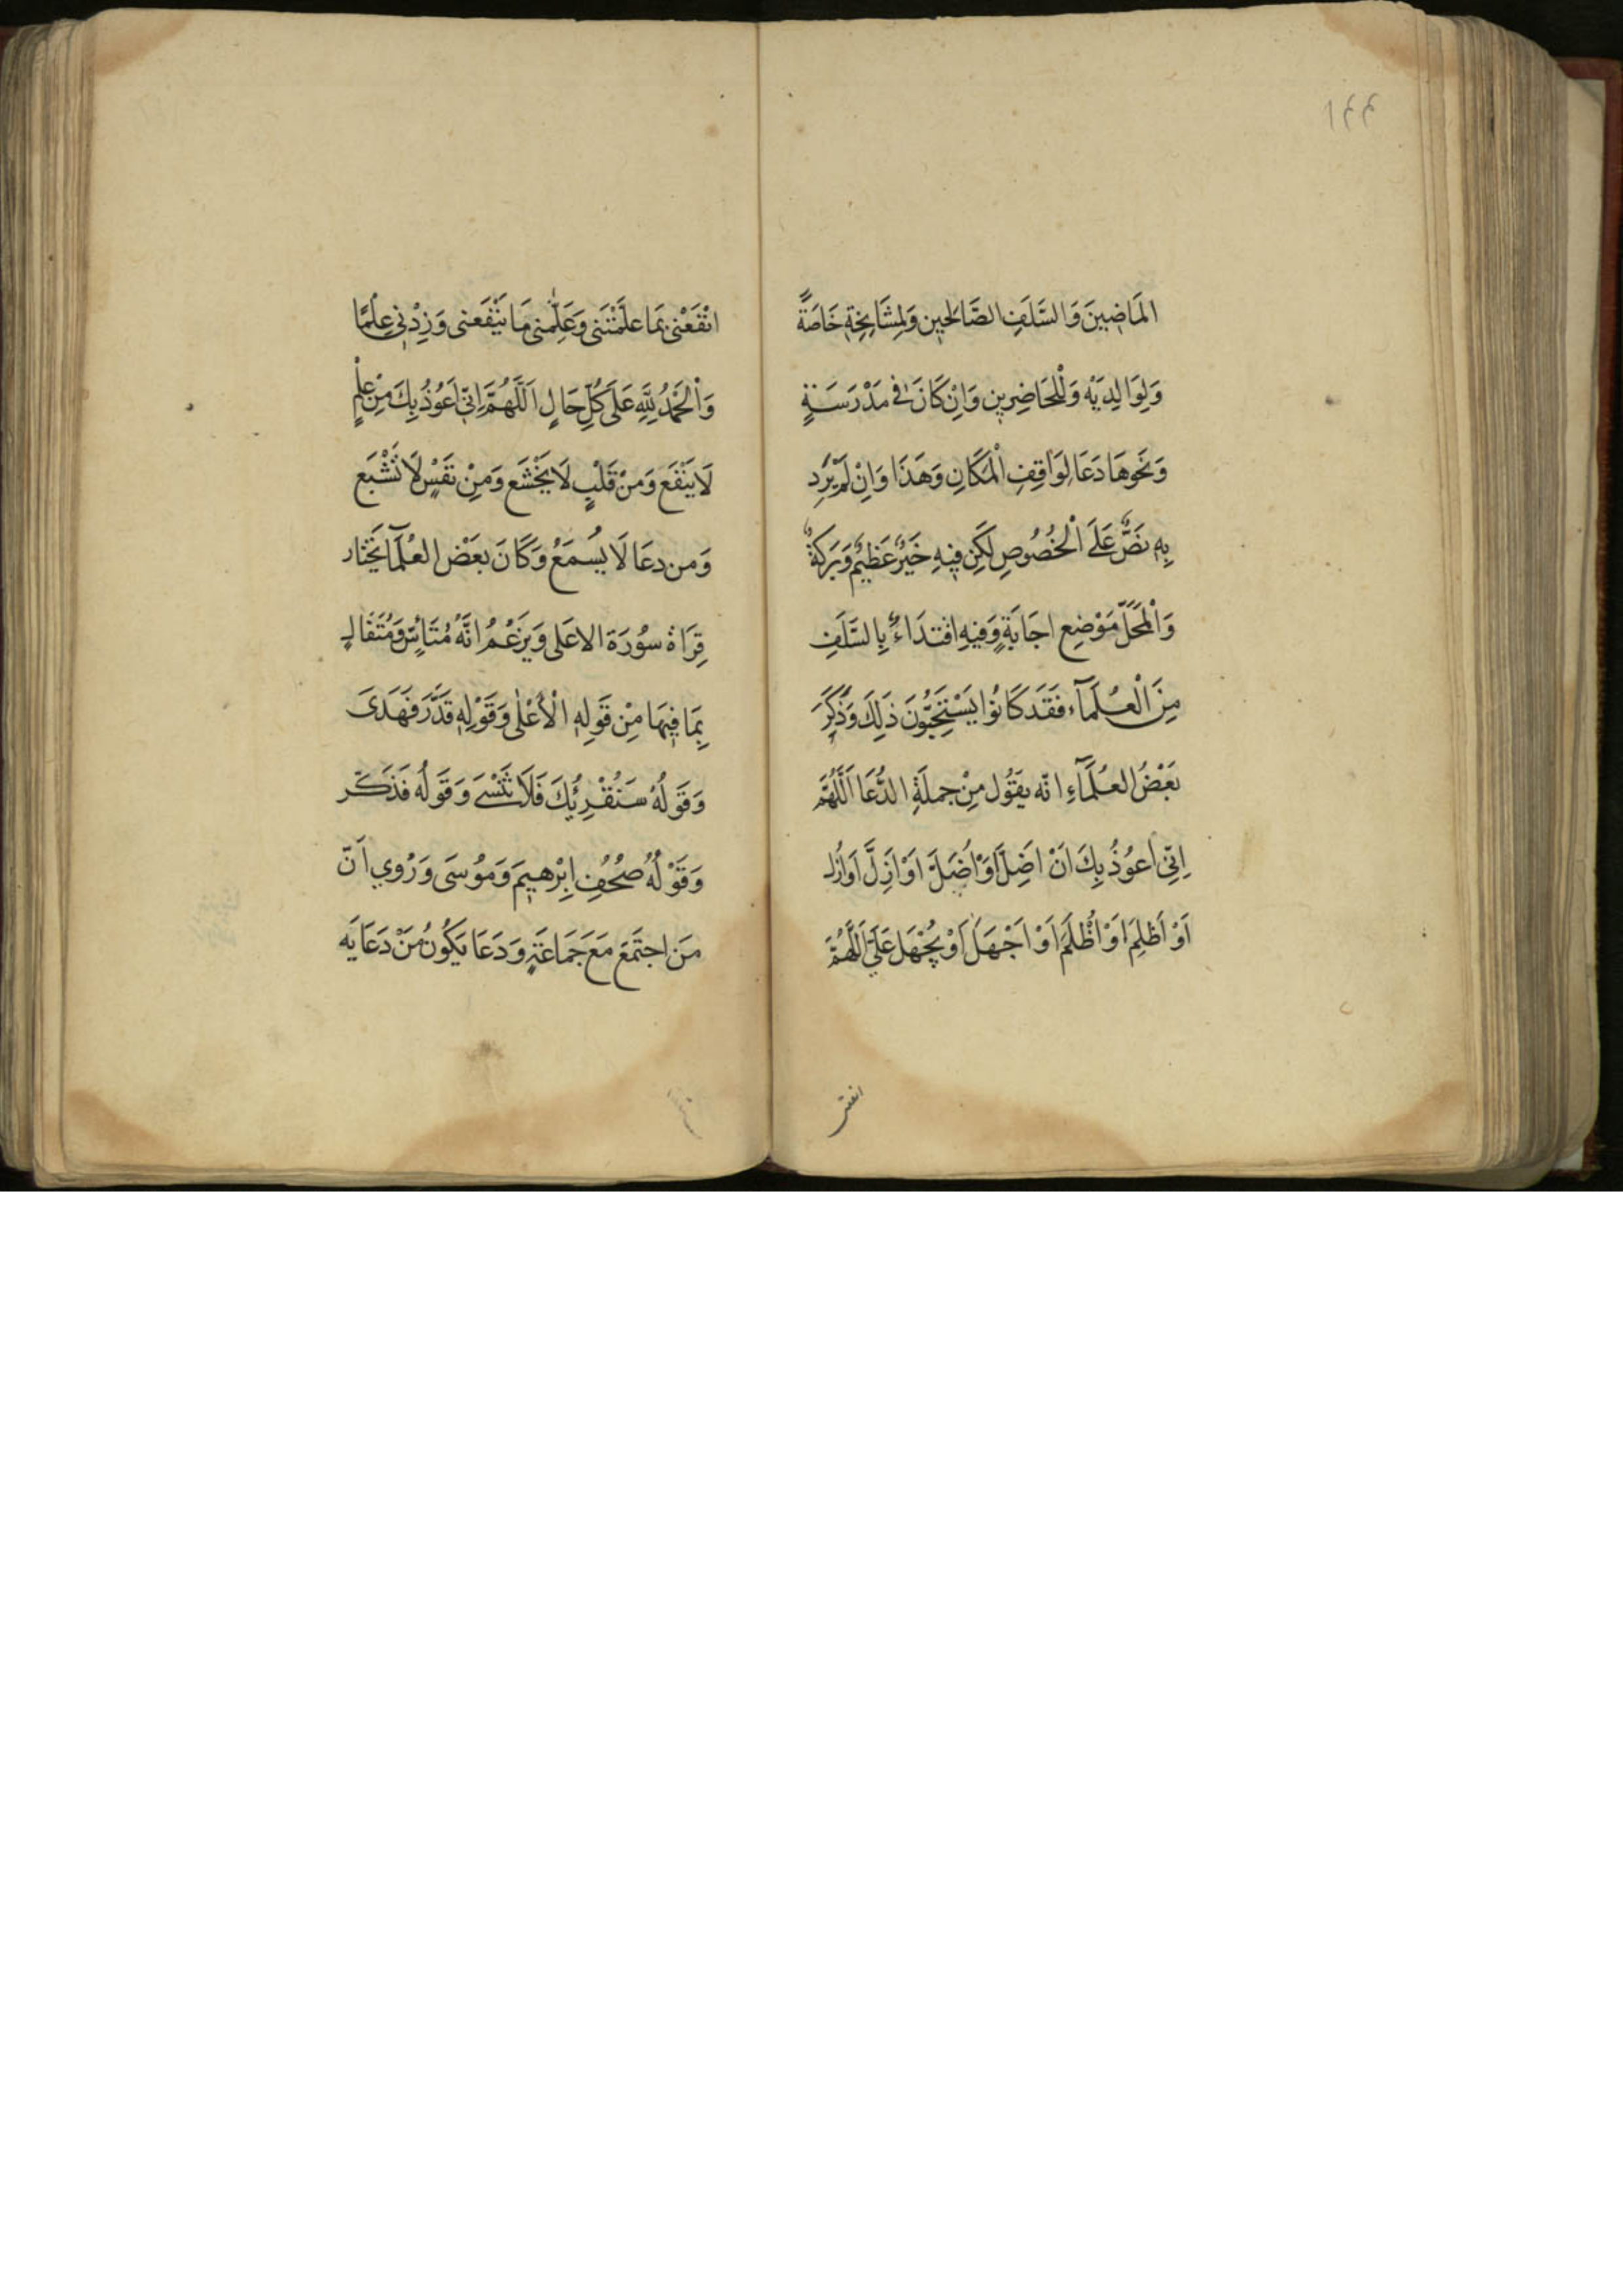 ١٤٤
المَاضِينَ وَالسَّلَفِ الصَّالحِينِ وَلِمشَايِخِهِ خَاصَّةً
وَلِوَالِدِيَهْ وَلْلِحَاضِرِينِ وَاِنْ كَانَ فِي مَدْرَسَةٍ
وَنَحوِهَا دَعَا لِوَاقِفِ الْمَكَانِ وَهَذَا وَاِنْ لَمْ يَرِد
بِهِ نَصٌّ عَلَى الْخُصُوصِ لَكِن فِيهِ خَيْرٌ عَظِيمٌ وَبَرَكَةٌ
وَالْمَحَلّ مَوْضِع اجَابَةٍ وَفيهِ اقتدَاءٌ بِالسَّلَفِ
مِنَ الْعُلَمَآءِ فَقَد كَانُوا يَسْتَحِبُّونَ ذَلِكَ وَذَكَرَ
بَعْضُ العُلَمَآءِ انّه يقُول مِنْ جملَةِ الدُّعَا اَللَّهُمَّ
اِنِّي اَعوُذُ بِكَ اَنْ اَضِلَّ اَوْ اُضَلَّ اَوْ اَزِلَّ اَوْ اُزَل
اَوْ اَظلِمَ اَوْ اُظْلَمَ اَوْ اَجْهَلَ اَوْ يُجْهَل عَلَيَّ اَللَّهُمَّ
انفعنى
انْفَعْنى بمَا علَّمْتَنى وَعَلِّمنى مَا يَنْفَعنى وَزِدْنِي عِلْمًا
وَالْحَمْدُ لِلَّهِ عَلَى كُلِّ حَالٍ اَللَّهُمَّ اِنّي اَعُوُذُ بِكَ مِنْ عِلْمٍ
لَا يَنْفَع وَمنْ قَلْبٍ لَا يَخْشَع وَمِنْ نَفْسٍ لَا تَشْبَع
وَمن دعَا لَا يُسمَعُ وَكَانَ بعَضْ العُلَمَآ يَخْتار
قِرَاة سوُرَة الاعَلى وَيَزعُمُ انَّهُ مُتَأسٍّ وَمُتَفَال
بِمَا فِيهَا مِنْ قَولِهِ الْأعْلٰى وَقَوْلِهِ قَدَّرَ فَهَدَى
وَقَوَلُهُ سَنُقْرِئُكَ فَلَا تَنْسَى وَقَولُه فَذَكّر
وَقَوْلُهُ صُحُفِ اِبْرٰهيِمَ وَمُوُسَى وَرُوِي اَنّ
مَن اجتَمَعَ مَعَ جَمَاعَةٍ وَدَعَا يَكُونُ مَنْ دَعَايَه